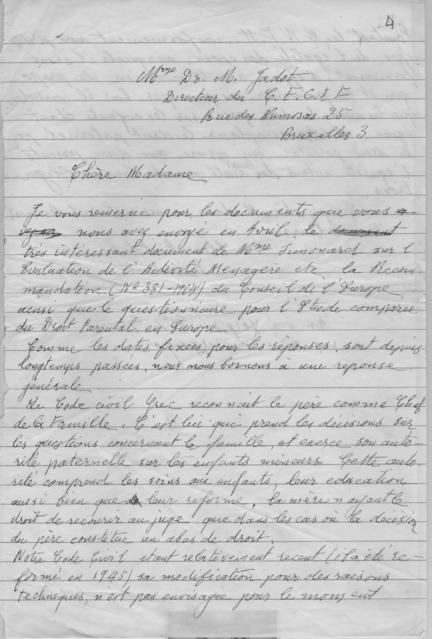 4
Mme Dr. M. Jadot
Directeur du C. F. C. E F
Rue des Mimosas 25
Bruxelles 3
Chère Madame
Je vous remercie pour les documents que vous
nous avez envoyé en Avril, le document
très intéressant document de Mme sur l'
Evaluation de l'Activité Menagère etc la Recom-
mandation (No 381-1964) du Conseil de l'Europe
ainsi que le questionnaire pour l'Etude comparée
du Droit Parental en Europe
Comme les dates fixées, pour les réponses, sont depuis
longtemps passées, nous nous bornons à une reponse
générale
Le Code civil Grec reconnait le père comme Chef
de la Famille. C'est lui que prend les décisions sur
les questions concernant la famille, et exerce son auto-
rité paternelle sur les enfants mineurs. Cette auto-
rité comprend les soins aux enfants, leur education
aussi bien que leur reforme, la mère n'ayant le
droit de recourir au juge, que dans les cas où la décision
du père constitue un abus de droit.
Notre Code Civil etant relativement recent (il a été re-
formé en 1945) sa modification pour des raisons
techniques, n'est pas envisagée pour le moment